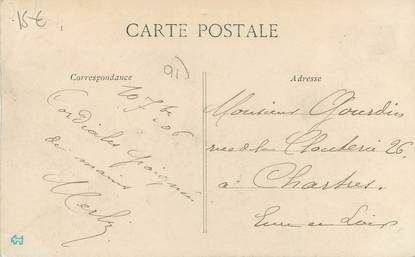 15 €
CARTE POSTALE
Correspondance
Adresse
91)
10 7bre 06
Cordiales poignées
de mains
Monsieur Gourdin
rue de la Clouterie 26
à Chartres.
Eure et Loir